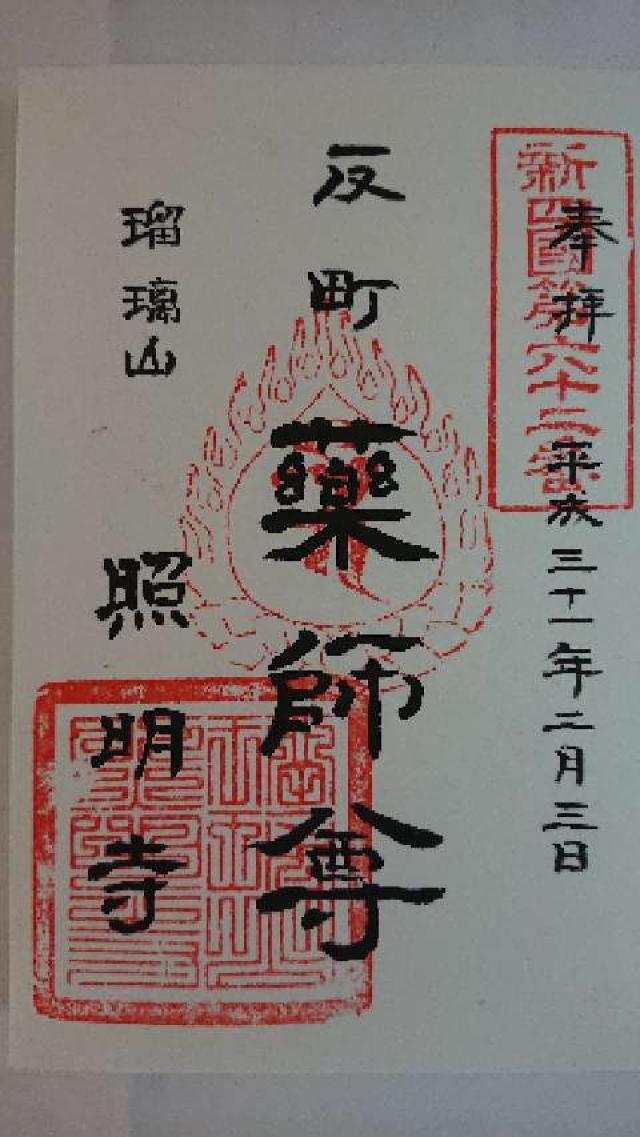 新四國第六十二番
奉拝 平成三十一年二月三日
反町 藥師尊
瑠璃山 照明寺